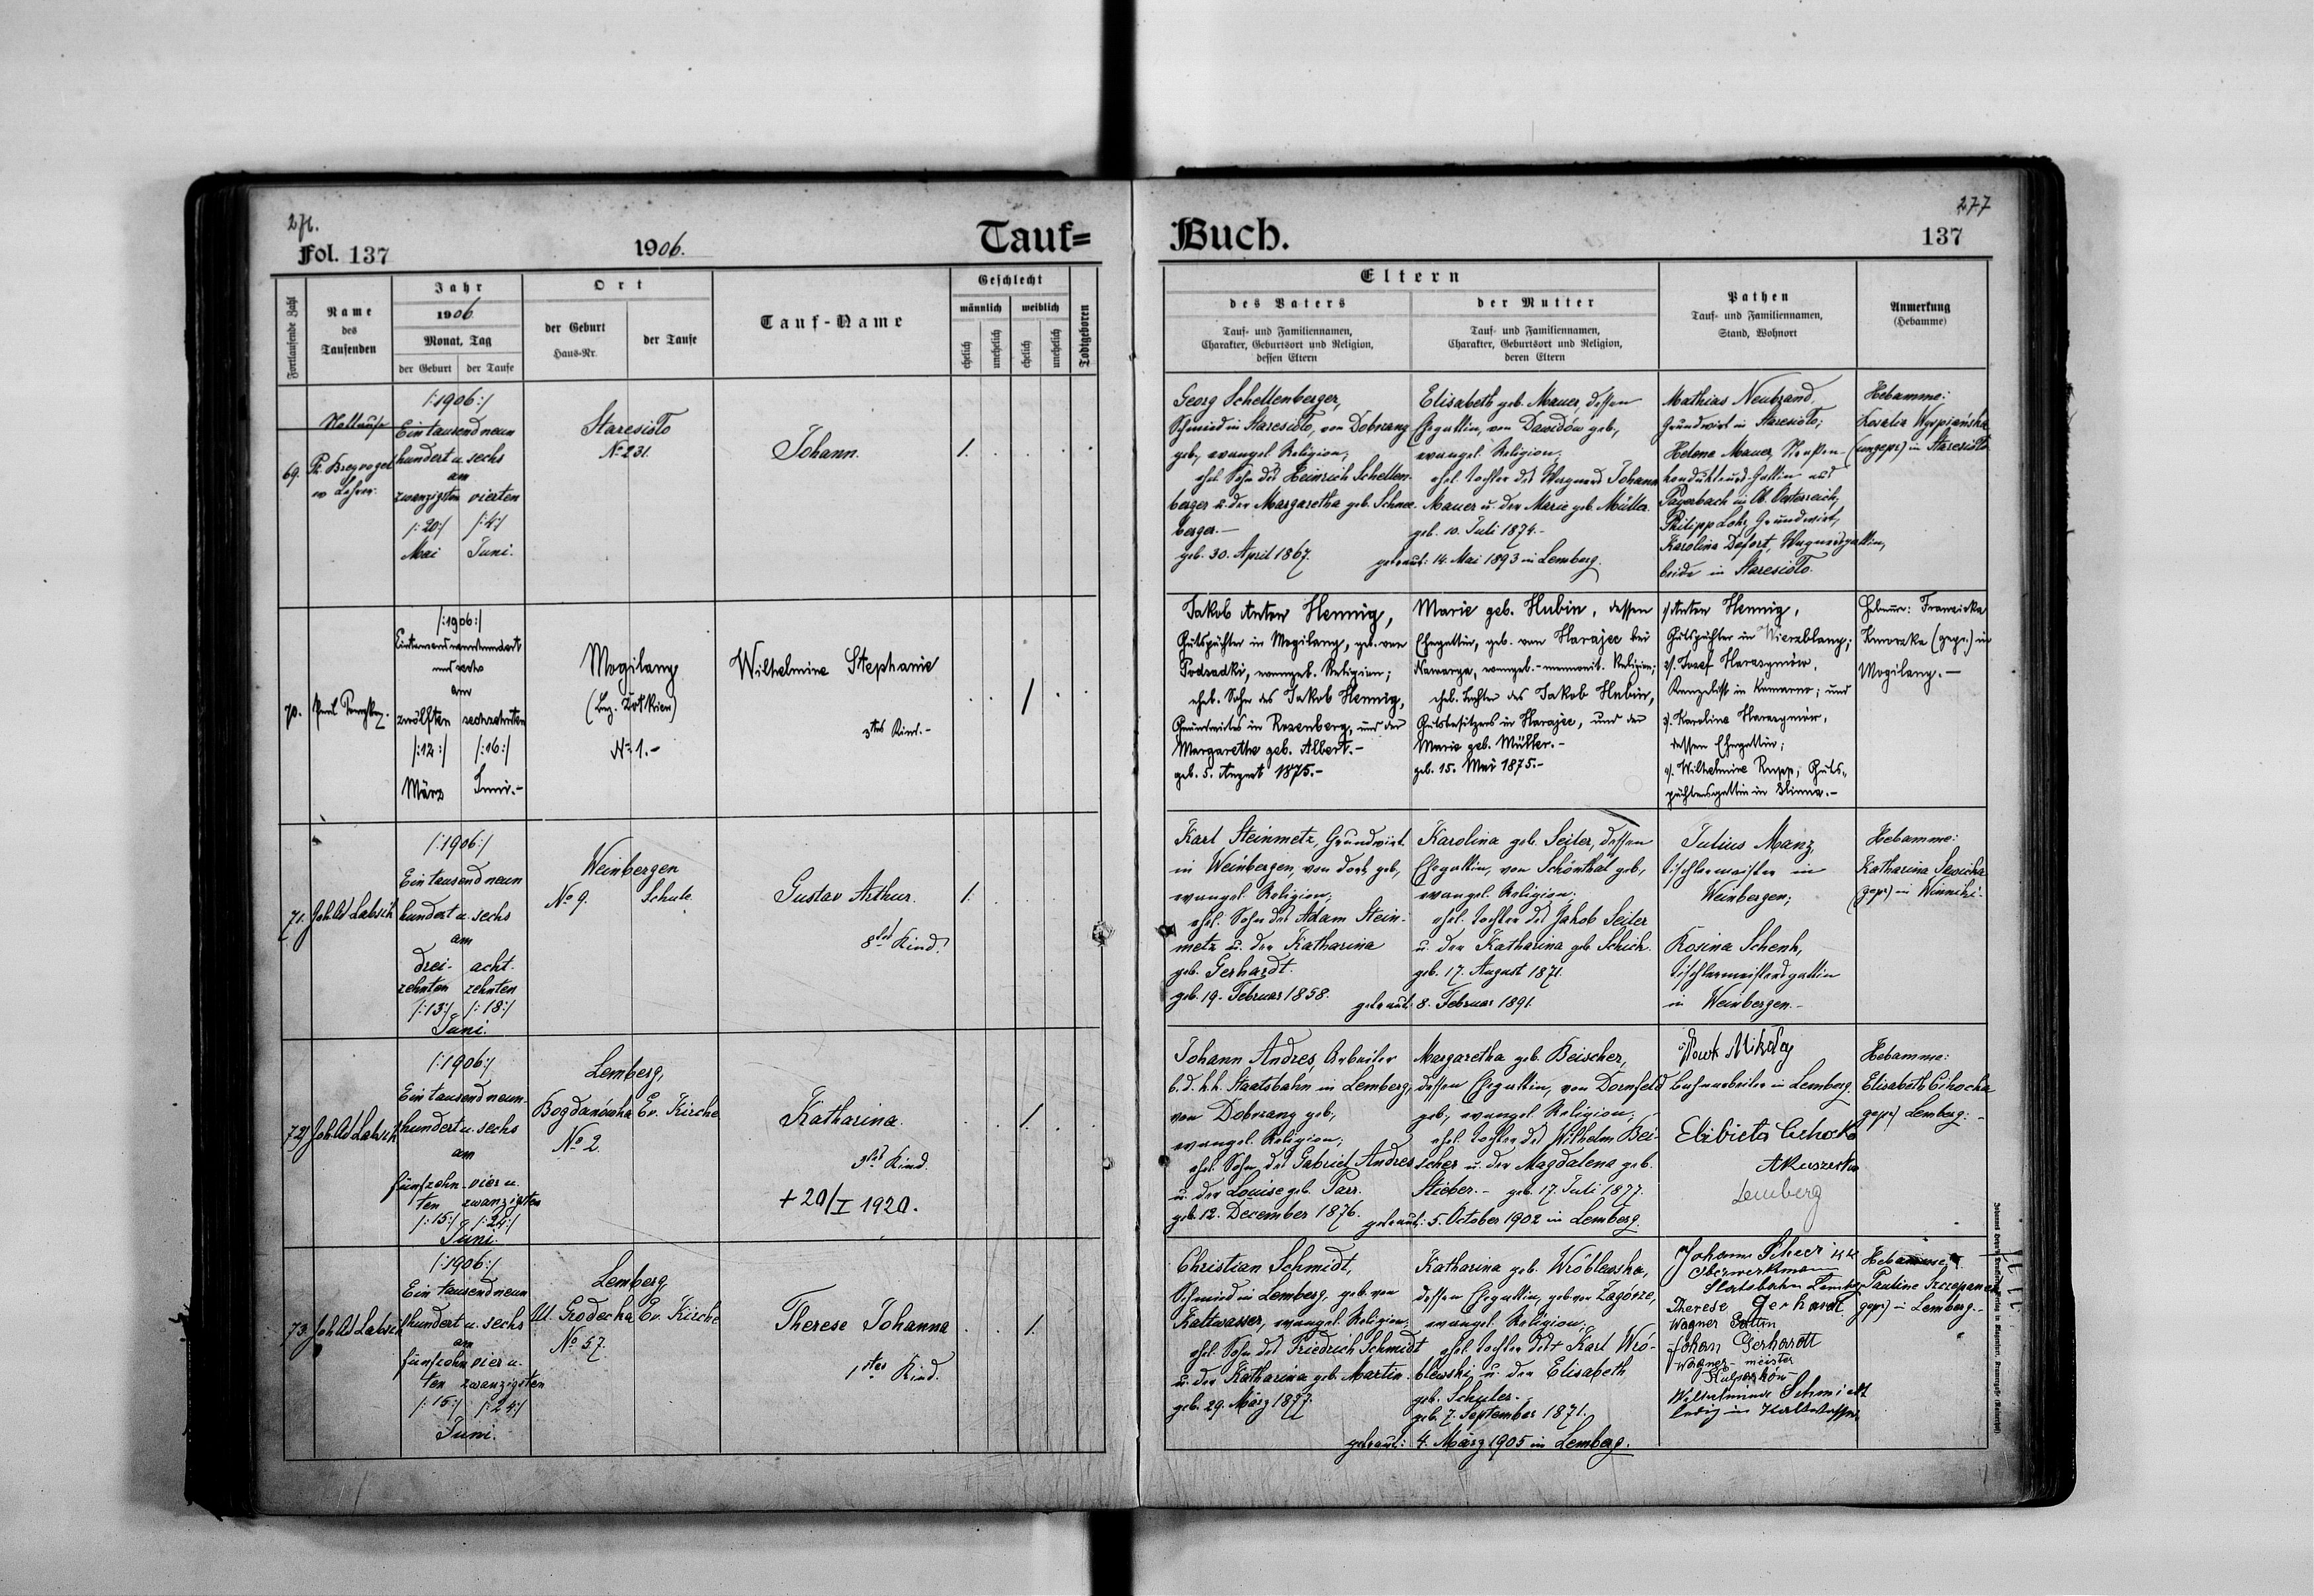 276.
Fol. 137
1906.
Tauf=
Fortlaufende Zahl
Name
des
Taufenden
Jahr
1906
Monat, Tag
der Geburt
der Taufe
Ort
der Geburt
Haus-Nr.
der Taufe
Tauf-Name
Geschlecht
männlich
weiblich
ehelich
unehelich
ehelich
unehelich
Todtgeboren
69.
Nottaufe
Lehrer
/:1906:/
Ein tausend neun
hundert u. sechs
am
zwanzigsten vierten
/:20:/ /:4:/
Mai Juni.
Staresioło
No 231.
Johann.
1.
70.
/:1906:/
Eintausendneunhundert
und sechs
am
zwölften sechzehnten
/:12:/ /:16:/
März Juni.-
Mogilany
(Bez. Żółkiew)
No 1.-
Wilhelmine Stephanie
3tes Kind.-
1
71.
Joh. Ad. Labsik
/:1906:/
Ein tausend neun
hundert u. sechs
am
drei- acht-
zehnten zehnten
/:13:/ /:18:/
Juni.
Weinbergen
No 9. Schule
Gustav Arthur.
8tes Kind.
1.
72.
Joh. Ad. Labsik
/:1906:/
Ein tausend neun-
hundert u. sechs
am
fünfzehn- vier u.
ten zwanzigsten
/:15:/ /:24:/
Juni.
Lemberg,
Bogdanówka Ev. Kirche
No 2.
Katharina.
3tes Kind.
+ 20/I 1920.
1.
73.
Joh. Ad. Labsik
/:1906:/
Ein tausend neun
hundert u. sechs
am
fünfzehn- vier u.
ten zwanzigsten
/:15:/ /:24:/
Juni.
Lemberg,
Ul. Grodecka Ev. Kirche
No 57.
Therese Johanna
1stes Kind.
1.
277
Buch.
137
Eltern
des Vaters
Tauf- und Familiennamen,
Charakter, Geburtsort und Religion,
dessen Eltern
der Mutter
Tauf- und Familiennamen,
Charakter, Geburtsort und Religion,
deren Eltern
Pathen
Tauf- und Familiennamen,
Stand, Wohnort
Anmerkung
(Hebamme)
Georg Schellenberger,
Schmied in Staresioło, von Dobrzany
geb., evangel. Religion;
ehel. Sohn des Heinrich Schellen-
berger u. der Margaretha geb. Schnee-
berger.-
geb. 30. April 1867.
Elisabeth geb. Mauer, dessen
Ehegattin, von Dawidów geb.,
evangel. Religion;
ehel. Tochter des Wagners Johann
Mauer u. der Marie geb. Müller.
geb. 10. Juli 1874.-
getraut: 14. Mai 1893 in Lemberg.
Mathias Neubrand,
Grundwirt in Staresioło;
Helena Mauer,
kondukteurs-Gattin aus
Payerbach in Oesterreich;
Philipp Loh, Grundwirt,
Karolina Defort, Wagnersgattin,
beide in Staresioło.
Hebamme:
Rosalia Wyspiańska
(ungepr.) in Staresioło
Jakob Anton Hennig,
Gutspächter in Mogilany, geb. von
Podsadki, evangel. Religion;
ehel. Sohn des Jakob Hennig,
Grundwirtes in Rosenberg, und der
Margarethe geb. Albert.-
geb. 5. August 1875.-
Marie geb. Hubin, dessen
Ehegattin, geb. von Harajec bei
evangel.-mennonit. Religion;
ehel. Tochter des Jakob Hubin,
Gutsbesitzers in Harajec, und der
Marie geb. Müller.-
geb. 15. Mai 1875.-
1/. Anton Hennig,
Gutspächter in Wierzblany;
2/. Josef Harasymów,
Kanzelist in Komarno; und
3/. Karoline Harasymów,
dessen Ehegattin;
4/. Wilhelmine Rupp, Guts-
pächtersgattin in Hlinna.-
Hebamme: Franziska
(gepr.) in
Mogilany.-
Karl Steinmetz, Grundwirt
in Weinbergen, von dort geb.,
evangel. Religion;
ehel. Sohn des Adam Stein-
metz u. der Katharina
geb. Gerhardt.
geb. 19. Februar 1858.
Karolina geb. Seiler, dessen
Ehegattin, von Schönthal geb.,
evangel. Religion;
ehel. Tochter des Jakob Seiler
u. der Katharina geb. Schick.
geb. 17. August 1871.
getraut: 8. Februar 1891.
Julius Manz,
Tischlermeister in
Weinbergen;
Rosina Schenk,
Tischlermeistersgattin
in Weinbergen.-
Hebamme:
Katharina Sawicka
(gepr.) in Winniki.
Johann Andres, Arbeiter
b. d. k.k. Staatsbahn in Lemberg,
von Dobrzany geb.,
evangel. Religion;
ehel. Sohn des Gabriel Andres
u. der Louise geb. Parr.
geb. 12. December 1876.
Margaretha geb. Beischer,
dessen Ehegattin, von Dornfeld
geb., evangel. Religion;
ehel. Tochter des Wilhelm Bei-
scher u. der Magdalena geb.
Stieber.- geb. 17. Juli 1877.
getraut: 5. October 1902 in Lemberg.
Nowk Mikołaj
Bahnarbeiter in Lemberg.
Elzbieta Cichocka
Akuszerka
Lemberg
Hebamme:
Elisabeth Cihocka
gepr.) Lemberg.-
Christian Schmidt,
Schmied in Lemberg, geb. von
Kaltwasser, evangel. Religion;
ehel. Sohn des Friedrich Schmidt
u. der Katharina geb. Martin.
geb. 29. März 1877.
Katharina geb. Wróblewska,
dessen Ehegattin, geb. von Zagórze,
evangel. Religion;
ehel. Tochter des + Karl Wró-
blewski u. der Elisabeth
geb. Schuler.-
geb. 7. September 1871.
getraut: 4. März 1905 in Lemberg.
Johann Scheer k.k.
Oberwerkmann
Staatsbahn Lemberg
Therese Gerhardt
Wagner Gattin
Johan Gerhardt
Wagner-meister
Kulparków
Wilhelmine Schmidt
ledig in Kaltwasser
Hebamme:
Pauline Szczepanek
gepr.) in Lemberg.-